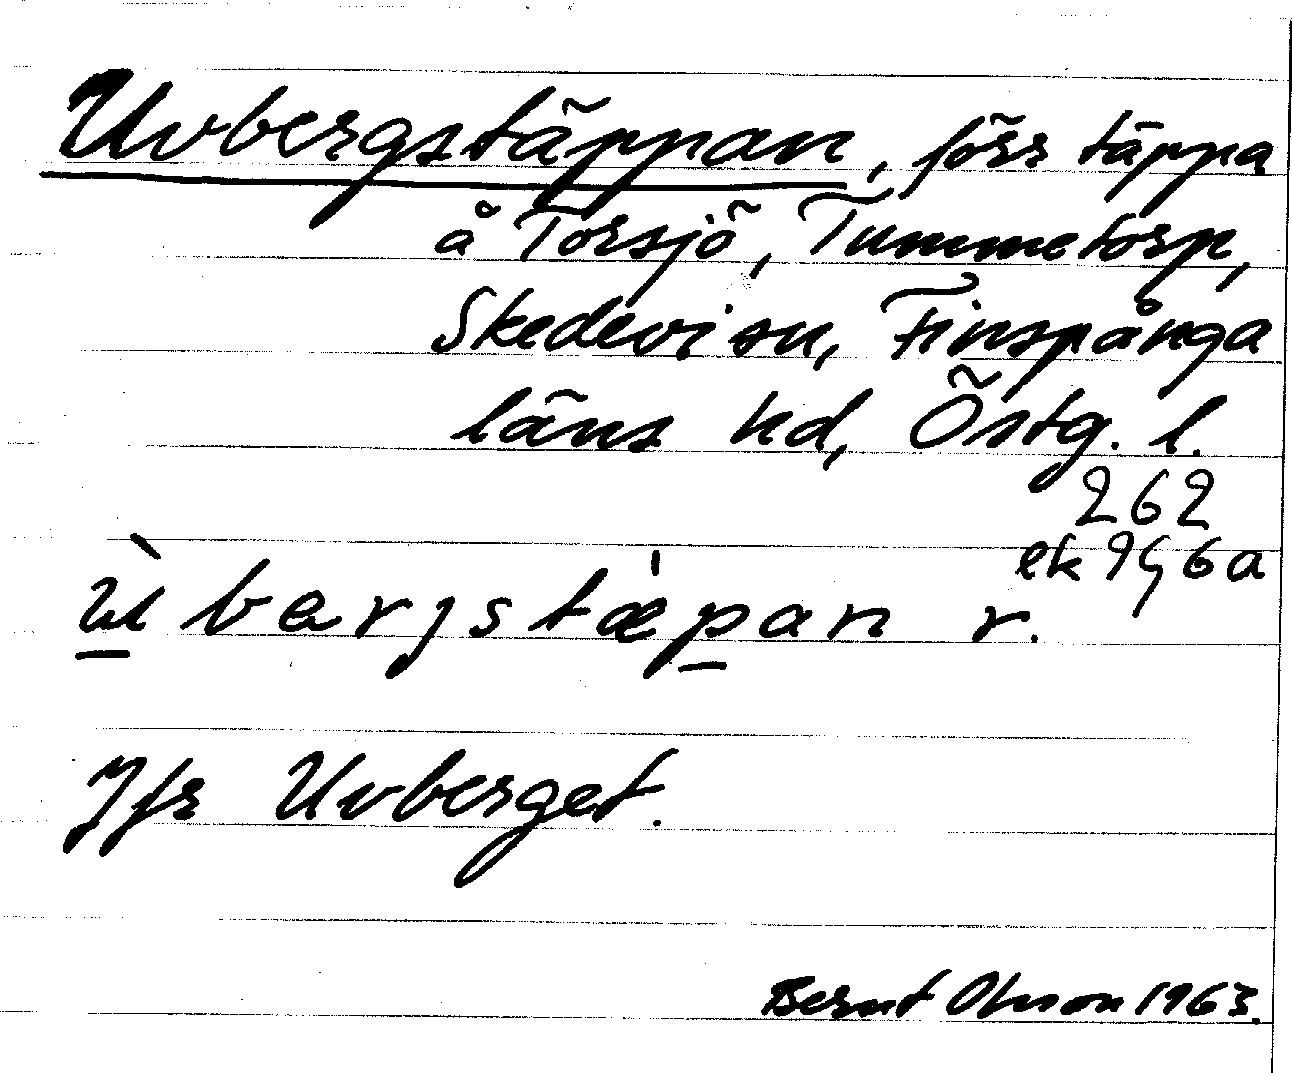 Uvbergstäppan, förr täppa
å Torsjö, Tummetorp,
Skedevi sn, Finspånga
läns hd, Östg. l.
262
ek 9G6a
ù̱ bergstæ'p̱an r.
Jfr Uvberget.
Bernt Olsson 1963.